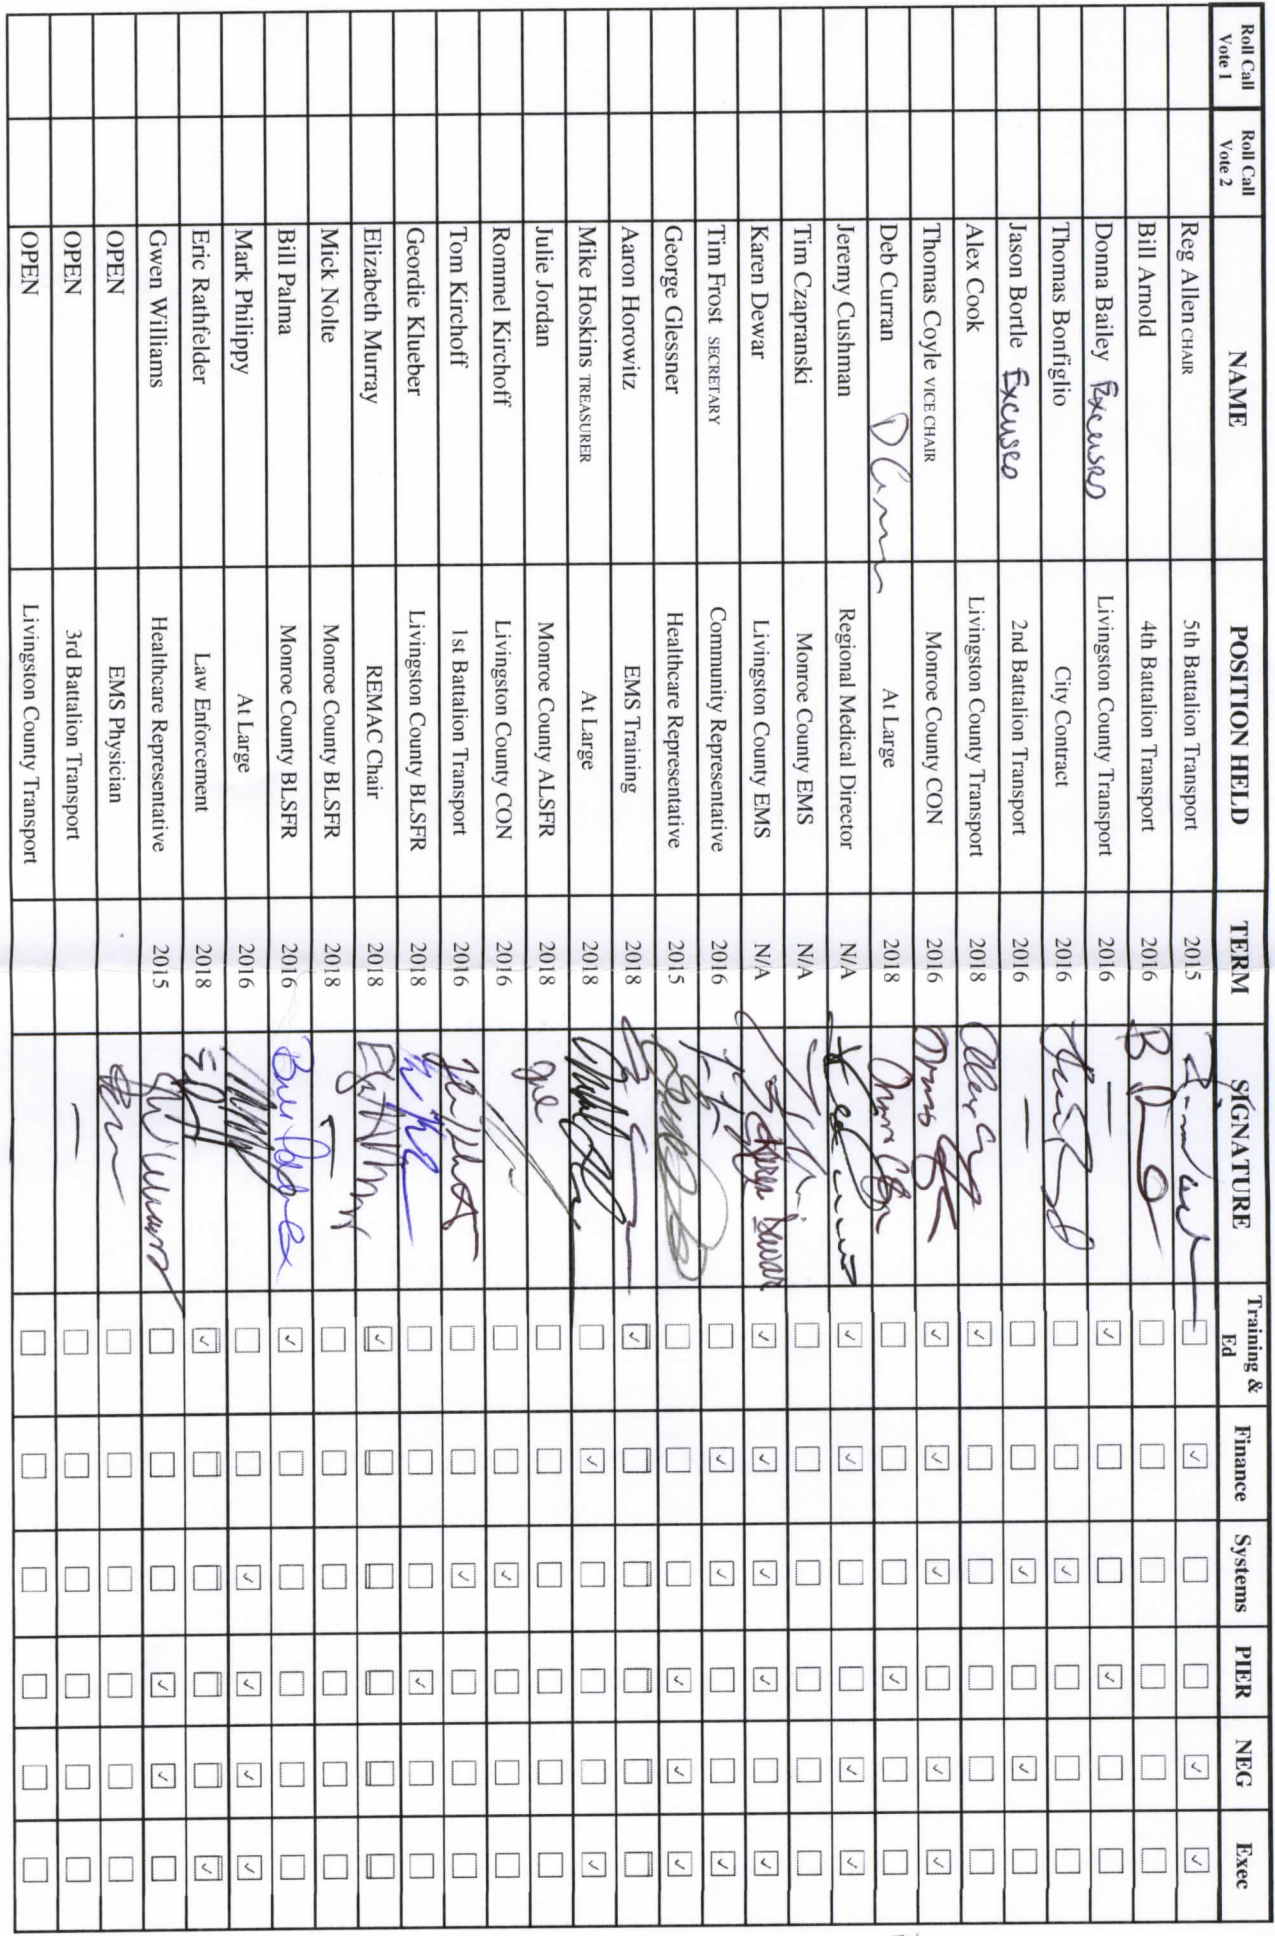 Roll Call Vote 1 Roll Call Vote 2 NAME POSITION HELD TERM SIGNATURE Training & Ed Finance Systems PIER NEG Exec
Reg Allen CHAIR 5th Battalion Transport 2015 ✓ ✓ ✓
Bill Arnold 4th Battalion Transport 2016
Donna Bailey Excused Livingston County Transport 2016 — ✓ ✓
Thomas Bonfiglio City Contract 2016 ✓
Jason Bortle Excused 2nd Battalion Transport 2016 — ✓ ✓
Alex Cook Livingston County Transport 2018 ✓
Thomas Coyle VICE CHAIR Monroe County CON 2016 ✓ ✓ ✓ ✓ ✓
Deb Curran At Large 2018 ✓
Jeremy Cushman Regional Medical Director N/A ✓ ✓ ✓ ✓
Tim Czapranski Monroe County EMS N/A
Karen Dewar Livingston County EMS N/A Karen Dewar ✓ ✓ ✓ ✓ ✓
Tim Frost SECRETARY Community Representative 2016 ✓ ✓ ✓
George Glessner Healthcare Representative 2015 ✓ ✓ ✓
Aaron Horowitz EMS Training 2018 ✓
Mike Hoskins TREASURER At Large 2018 ✓ ✓
Julie Jordan Monroe County ALSFR 2018
Rommel Kirchoff Livingston County CON 2016 ✓
Tom Kirchoff 1st Battalion Transport 2016 ✓
Geordie Klueber Livingston County BLSFR 2018 ✓
Elizabeth Murray REMAC Chair 2018 ✓
Mick Nolte Monroe County BLSFR 2018
Bill Palma Monroe County BLSFR 2016 ✓
Mark Philippy At Large 2016 ✓ ✓ ✓ ✓
Eric Rathfelder Law Enforcement 2018 ✓ ✓
Gwen Williams Healthcare Representative 2015 ✓ ✓
OPEN EMS Physician
OPEN 3rd Battalion Transport —
OPEN Livingston County Transport —